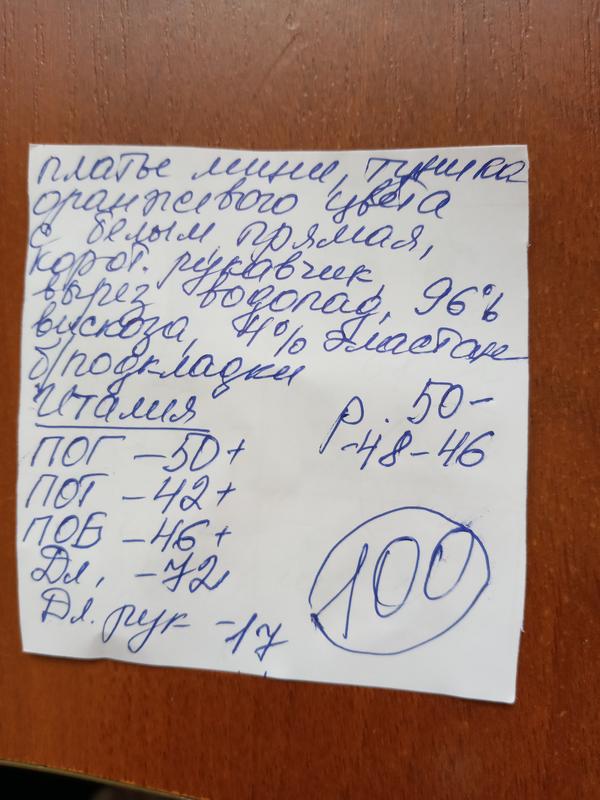 платье мини, туника
оранжевого цвета
с белым прямая,
корот. рукавчик,
вырез водопад, 96%
вискоза, 4% эластан
б/подкладки
Италия
р. 50-
-48-46
ПОГ -50+
ПОТ -42+
ПОБ -46+
Дл. -72
Дл. рук -17
100